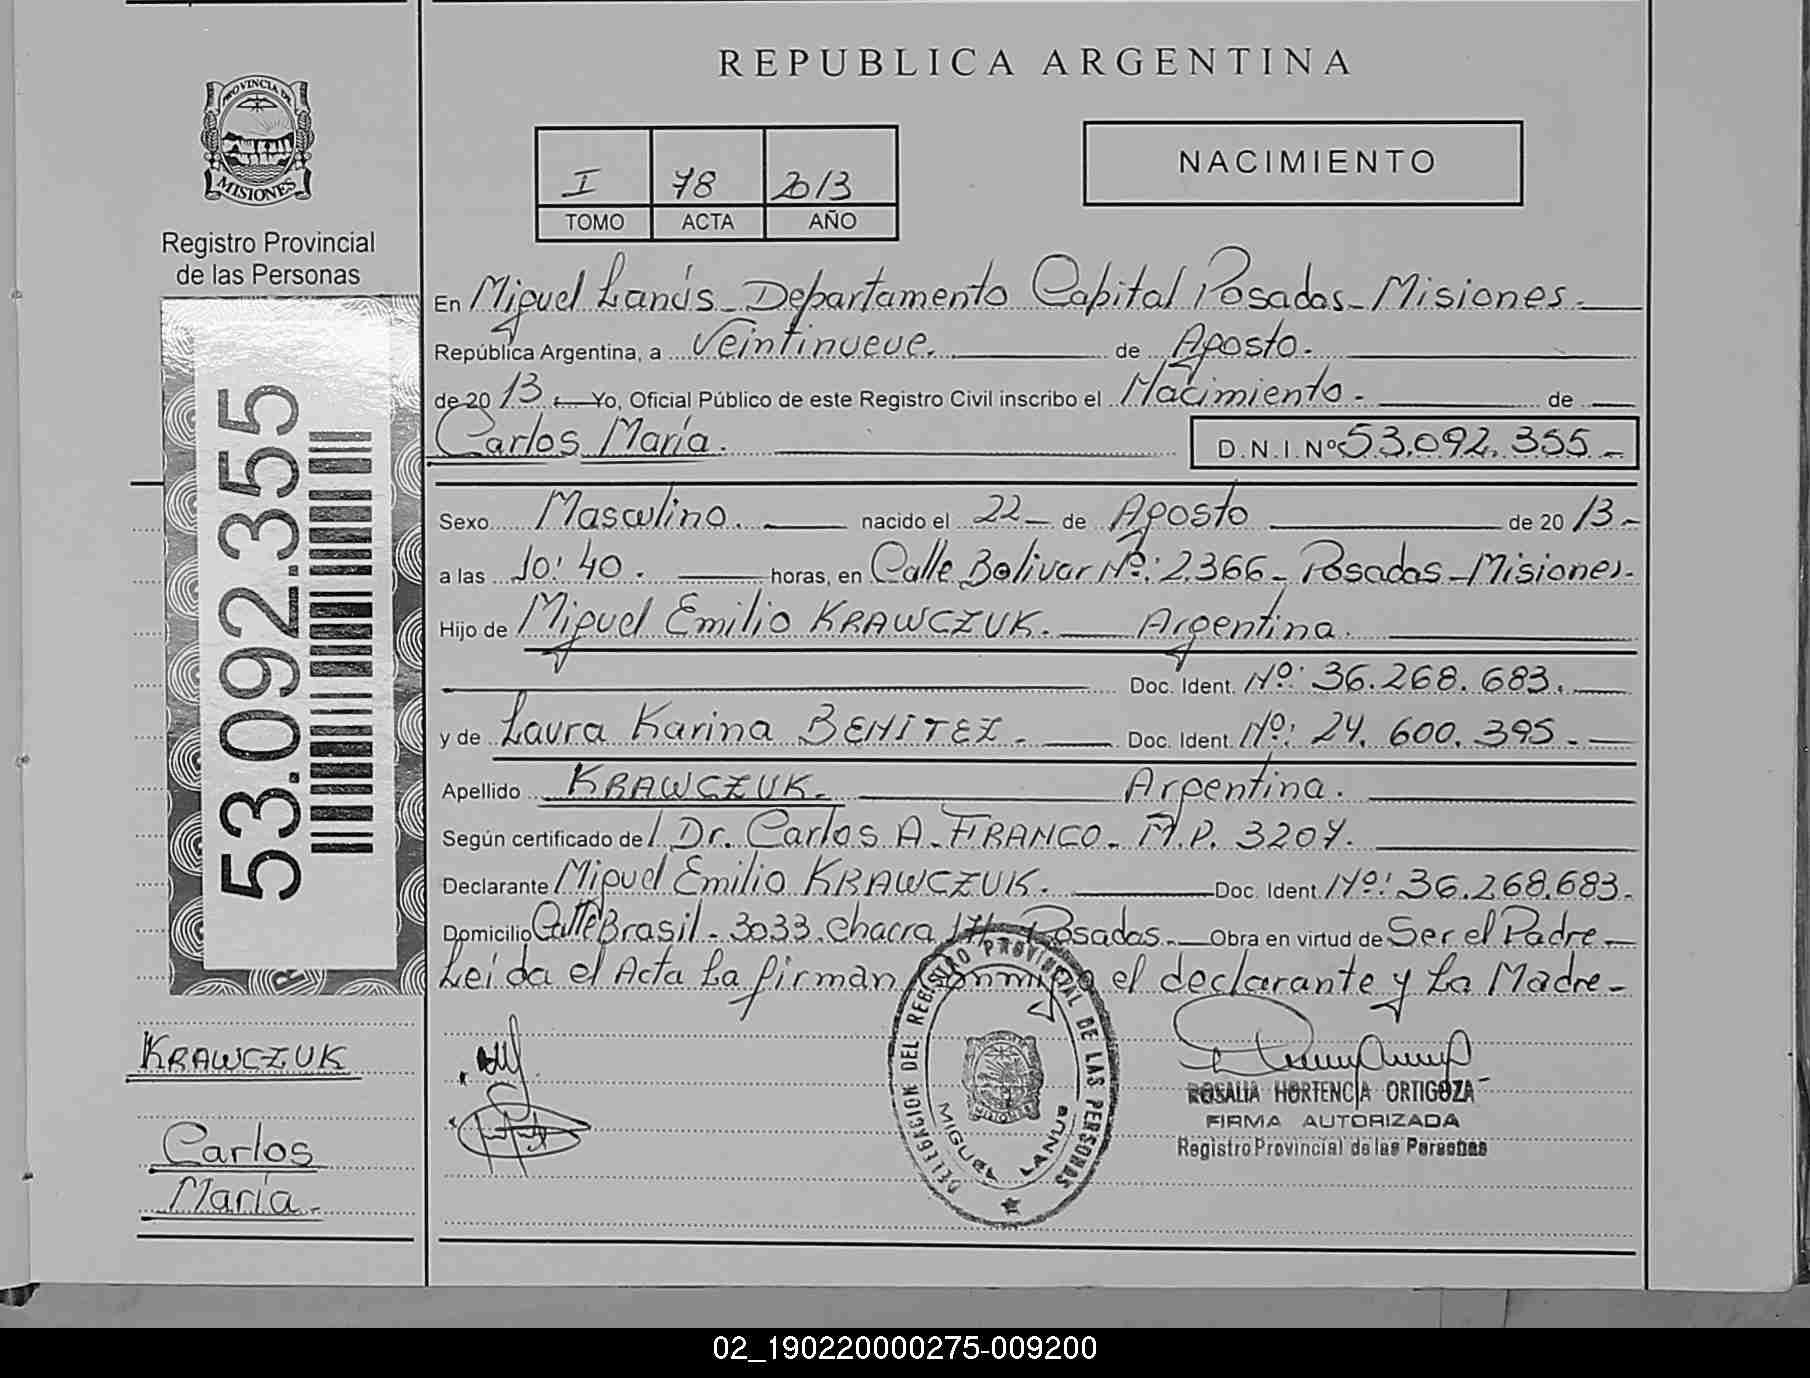 REPUBLICA ARGENTINA
PROVINCIA DE
MISIONES
Registro Provincial
de las Personas
I 78 2013
TOMO ACTA AÑO
NACIMIENTO
53.092.355
En Miguel Lanús - Departamento Capital Posadas - Misiones.
República Argentina, a Veintinueve. de Agosto.
de 20 13 Yo, Oficial Público de este Registro Civil inscribo el Nacimiento - de
Carlos María. D.N.I.Nº 53.092.355.-
Sexo Masculino. nacido el 22 - de Agosto de 20 13-
a las 10:40. horas, en Calle Bolivar Nº: 2.366 - Posadas - Misiones.
Hijo de Miguel Emilio KRAWCZUK. Argentina.
Doc. Ident. Nº: 36.268.683.
y de Laura Karina BENITEZ. Doc. Ident. Nº: 24.600.395.
Apellido KRAWCZUK. Argentina.
Según certificado del Dr. Carlos A. FRANCO. M.P. 3207.
Declarante Miguel Emilio KRAWCZUK. Doc. Ident. Nº: 36.268.683.
Domicilio Calle Brasil - 3033 chacra Posadas. Obra en virtud de Ser el Padre -
Leida el Acta La firman conmigo el declarante y La Madre -
DELEGACION DEL REGISTRO PROVINCIAL DE LAS PERSONAS
MISIONES
MIGUEL LANUS
ROSALIA HORTENCIA ORTIGOZA
FIRMA AUTORIZADA
Registro Provincial de las Personas
KRAWCZUK
Carlos
María.
02_190220000275-009200